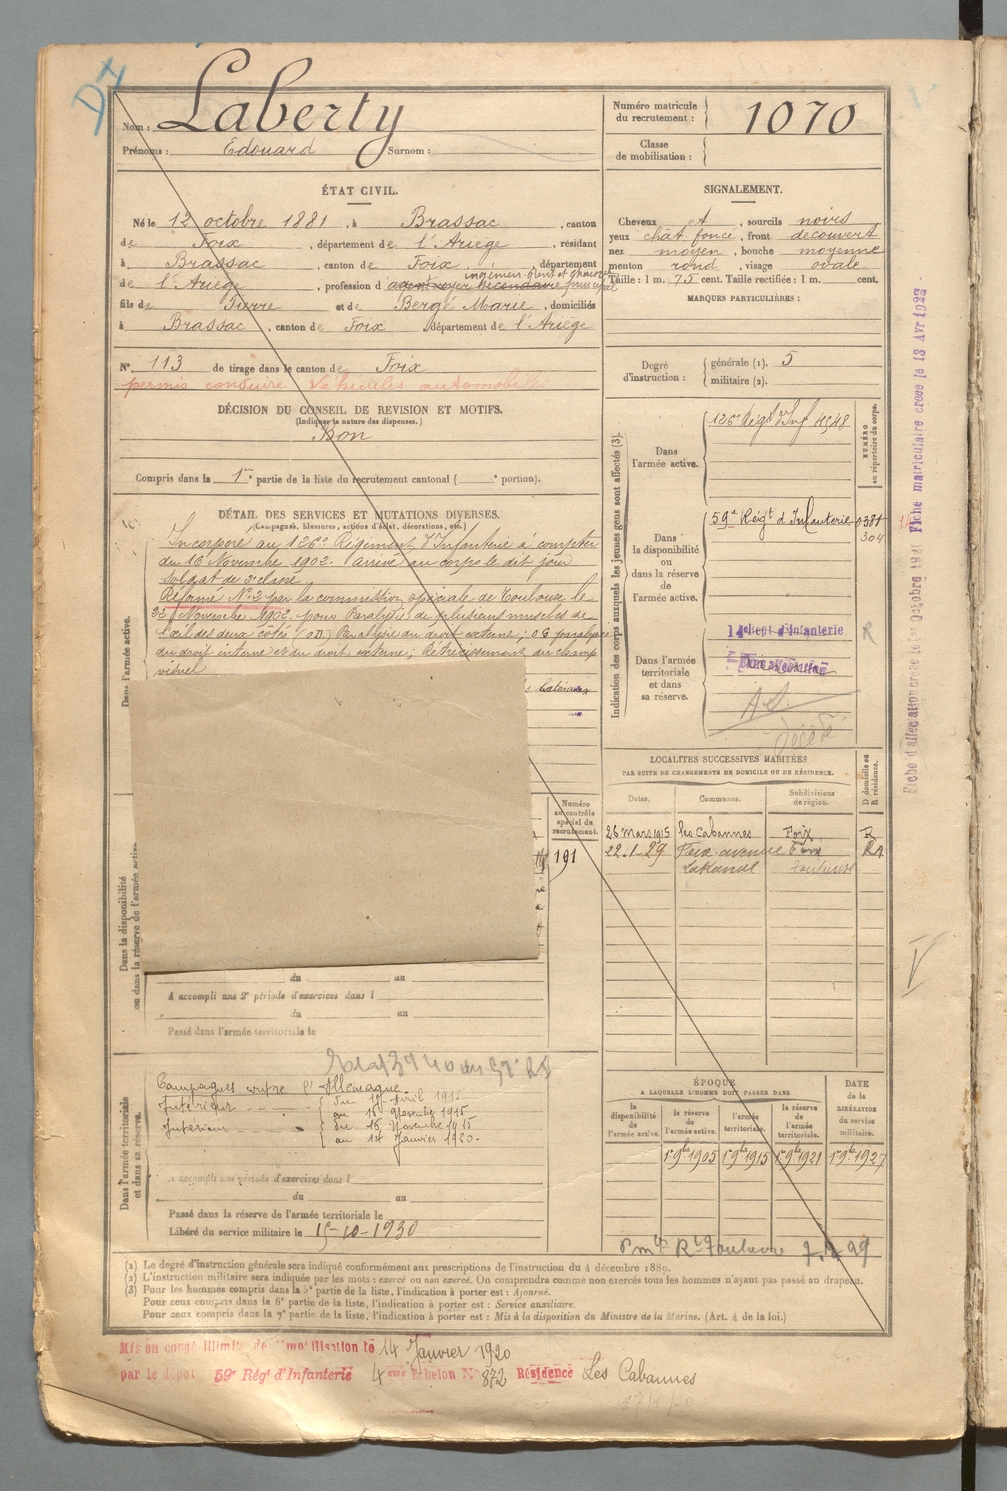 Nom : Laberty
Prénoms : Edouard Surnom :
Numéro matricule
du recrutement : 1070
Classe
de mobilisation :
ÉTAT CIVIL.
Né le 12 octobre 1881, à Brassac, canton
de Foix, département de l'Ariège, résidant
à Brassac, canton de Foix, département
de l'Ariège, profession d
fils de Pierre et de Bergé Marie, domiciliés
à Brassac, canton de Foix, département de l'Ariège
N° 113 de tirage dans le canton de Foix
permis conduire véhicules automobiles
DÉCISION DU CONSEIL DE REVISION ET MOTIFS.
(Indiquer la nature des dispenses.)
Bon
Compris dans la 1re partie de la liste du recrutement cantonal ( e portion).
SIGNALEMENT.
Cheveux et, sourcils noirs
yeux chat foncé, front découvert
nez moyen, bouche moyenne
menton rond, visage ovale
Taille : 1 m. 75 cent. Taille rectifiée : 1 m. cent.
MARQUES PARTICULIÈRES :
Degré
d'instruction :
générale (1). 5
militaire (2).
DÉTAIL DES SERVICES ET MUTATIONS DIVERSES.
(Campagnes, blessures, actions d'éclat, décorations, etc.)
Dans l'armée active.
Incorporé au 126e Régiment d'Infanterie à compter
du 16 Novembre 1902. Arrivé au corps le dit jour
soldat de 2e classe.
Réformé N° 2 par la commission spéciale de Toulouse le
22 Novembre 1902 pour Paralysie de plusieurs muscles de
l'œil des deux côtés. (OD) Paralysie du droit externe ; OG paralysie
du droit interne et du droit externe ; Rétrécissement du champ
visuel
Indication des corps auxquels les jeunes gens sont affectés (3).
NUMÉRO
au répertoire du corps.
Dans
l'armée active.
126e Régt d'Inf 4548
Dans
la disponibilité
ou
dans la réserve
de
l'armée active.
59e Régt d'Infanterie 0381
304
Dans l'armée
territoriale
et dans
sa réserve.
14e Regt d'Infanterie
R
Décédé
Fiche d'affectation créée le 1er Octobre 1941 Fiche matriculaire créée le 13 Avr 1922
LOCALITÉS SUCCESSIVES HABITÉES
PAR SUITE DE CHANGEMENTS DE DOMICILE OU DE RÉSIDENCE.
D domicile ou
R résidence.
Dates. Communes. Subdivisions
de région.
26 mars 1915 les Cabannes Foix R
22.1.29 Foix avenue Foix RA
Lakanal Toulouse
Numéro
au contrôle
spécial du
recrutement.
191
Dans la disponibilité
ou dans la réserve de l'armée active.
du au
A accompli une 2e période d'exercices dans l
du au
Passé dans l'armée territoriale le
Dans l'armée territoriale
et dans sa réserve.
Campagnes contre l'Allemagne
Intérieur du 15 Avril 1915
au 15 Novembre 1915
Intérieur du 16 Novembre 1915
au 14 Janvier 1920.
A accompli une période d'exercices dans l
du au
Passé dans la réserve de l'armée territoriale le
Libéré du service militaire le 15-10-1930
ÉPOQUE
A LAQUELLE L'HOMME DOIT PASSER DANS
la
disponibilité
de
l'armée active.
la réserve
de
l'armée active.
l'armée
territoriale.
la réserve
de
l'armée
territoriale.
DATE
de la
LIBÉRATION
du service
militaire.
1er 9bre 1905 1er 9bre 1915 1er 9bre 1921 1er 9bre 1927
(1) Le degré d'instruction générale sera indiqué conformément aux prescriptions de l'instruction du 4 décembre 1889.
(2) L'instruction militaire sera indiquée par les mots : exercé ou non exercé. On comprendra comme non exercés tous les hommes n'ayant pas passé au drapeau.
(3) Pour les hommes compris dans la 5e partie de la liste, l'indication à porter est : Ajourné.
Pour ceux compris dans la 6e partie de la liste, l'indication à porter est : Service auxiliaire.
Pour ceux compris dans la 7e partie de la liste, l'indication à porter est : Mis à la disposition du Ministre de la Marine. (Art. 4 de la loi.)
Mis en congé illimité de démobilisation le 14 Janvier 1920
par le dépôt 59e Régt d'Infanterie 4ème Echelon N° 872 Résidence Les Cabannes